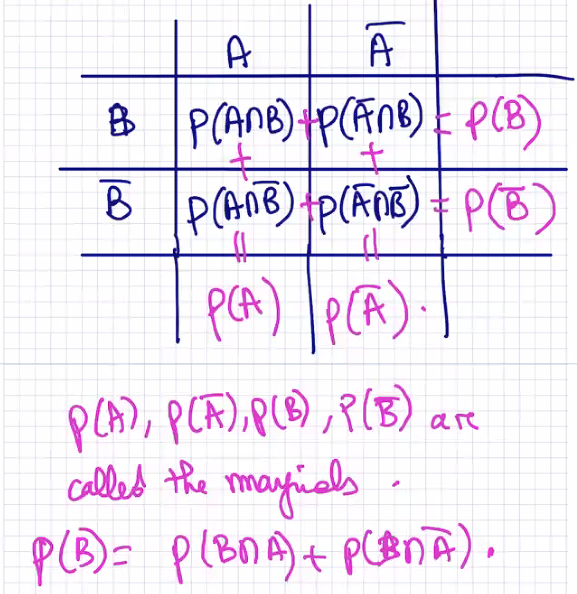 A Ā
B P(A∩B) + P(Ā∩B) = P(B)
+ +
B̄ P(A∩B̄) + P(Ā∩B̄) = P(B̄)
= =
P(A) P(Ā).
P(A), P(Ā), P(B), P(B̄) are
called the marginals.
P(B) = P(B∩A) + P(B∩Ā).